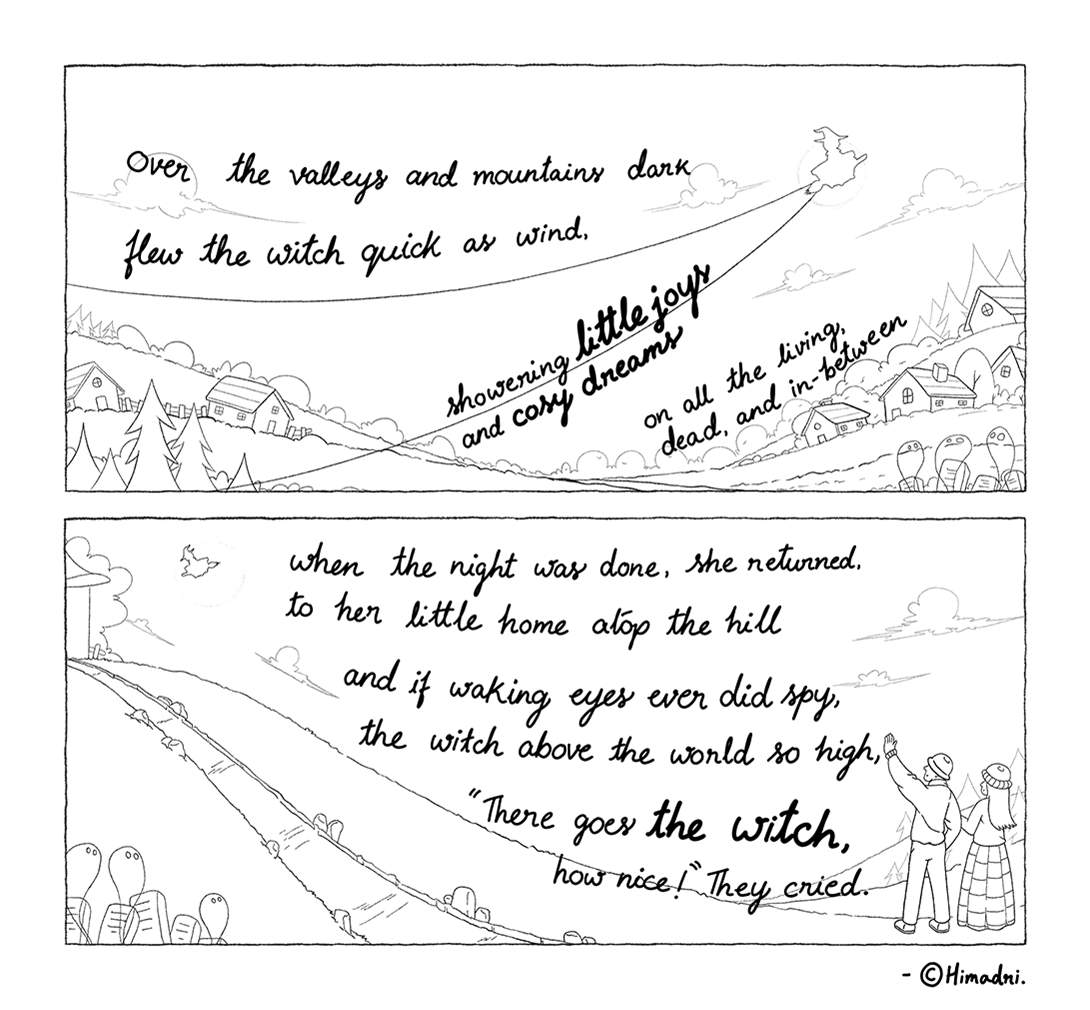 Over the valleys and mountains dark
flew the witch quick as wind,
showering little joys
and cosy dreams
on all the living,
dead, and in-between
when the night was done, she returned.
to her little home atop the hill
and if waking eyes ever did spy,
the witch above the world so high,
"There goes the witch,
how nice!" They cried.
- ©Himadri.